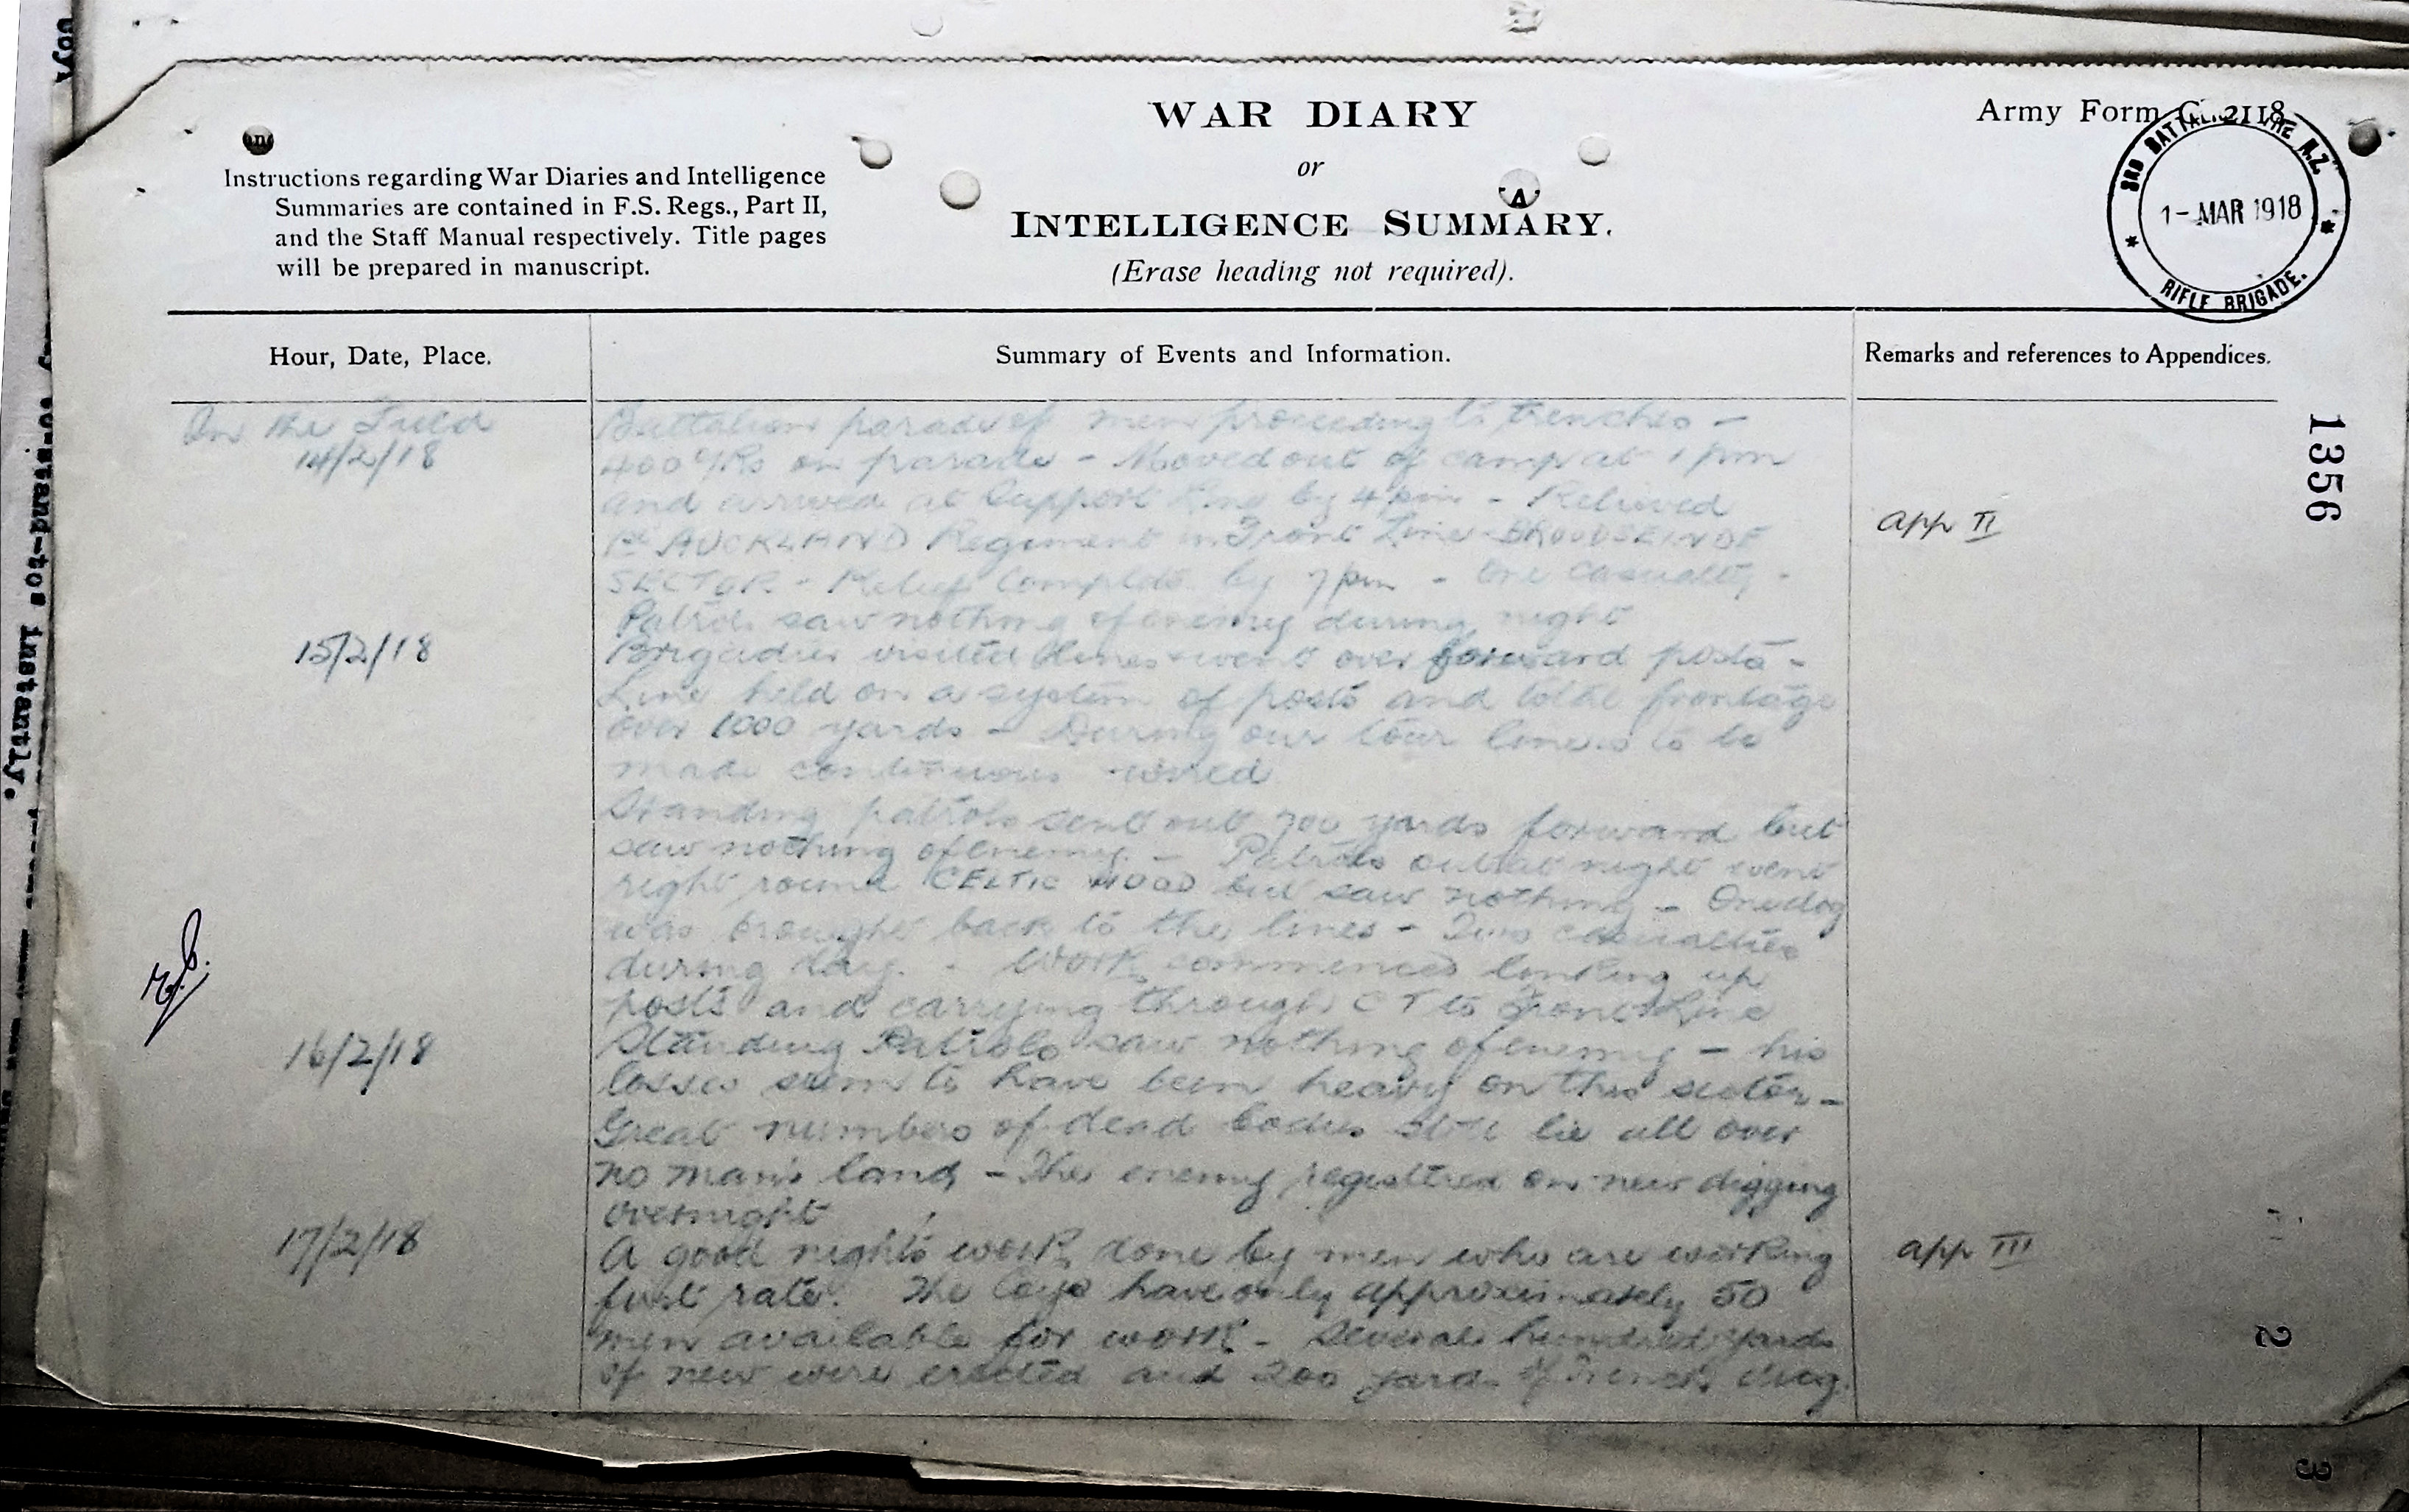 WAR DIARY
or
INTELLIGENCE SUMMARY.
(Erase heading not required).
Army Form C. 2118
3RD BATTALION THE N.Z.
1 - MAR 1918
RIFLE BRIGADE.
Instructions regarding War Diaries and Intelligence
Summaries are contained in F.S. Regs., Part II,
and the Staff Manual respectively. Title pages
will be prepared in manuscript.
Hour, Date, Place.
Summary of Events and Information.
Remarks and references to Appendices.
1356
In the Field
14/2/18
Battalion parade of men proceeding to trenches -
400 O/Rs on parade - Moved out of camp at 1 pm
and arrived at Support Line by 4 pm - Relieved
1st AUCKLAND Regiment in Front Line BROODSEINDE
SECTOR - Relief complete by 7 pm - One casualty -
Patrols saw nothing of enemy during night
app II
15/2/18
Brigadier visited lines & went over forward posts -
Line held on a system of posts and total frontage
over 1000 yards - During our tour line is to be
made continuous & wired
Standing patrols sent out 700 yards forward but
saw nothing of enemy. - Patrols out at night went
right round CELTIC WOOD but saw nothing - One dog
was brought back to the lines - Two casualties
during day. - Work commenced linking up
posts and carrying through C T to Front Line
16/2/18
Standing Patrols saw nothing of enemy - his
losses seem to have been heavy on this sector -
Great numbers of dead bodies still lie all over
no man's land - The enemy registered on new digging
overnight
17/2/18
A good night's work done by men who are working
first rate. The Coys have only approximately 50
men available for work - Several hundred yards
of new were erected and 200 yards of trench dug.
app III
2
3
instantly.